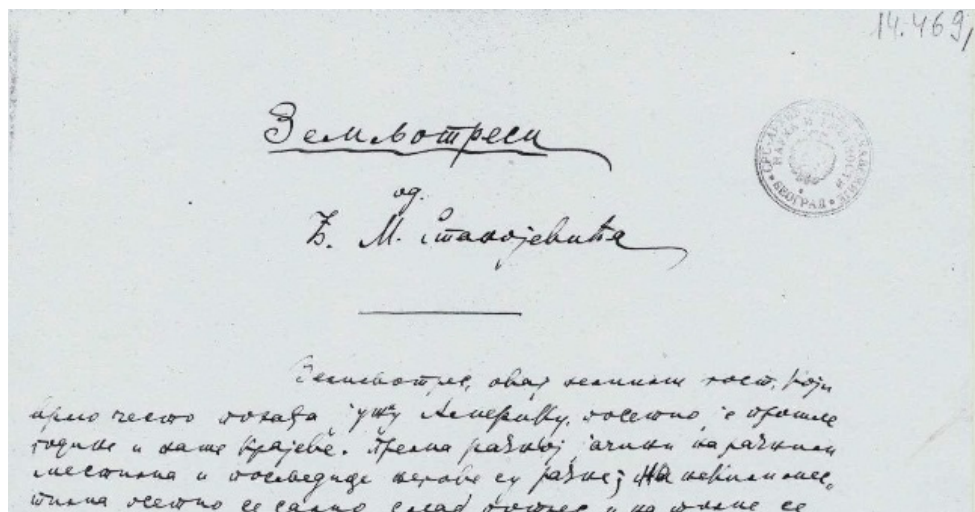 14.469,
Земљотреси
од
Ђ. М. Станојевића
БЕОГРАД
Земљотрес, овај немили гост, који
врло често похађа јужну Америку, посетио је прошле
године и наше крајеве. Према разној јачини на разним
местима и последице његове су разне; на неким мес-
тима осетио се само слаб потрес и на томе се